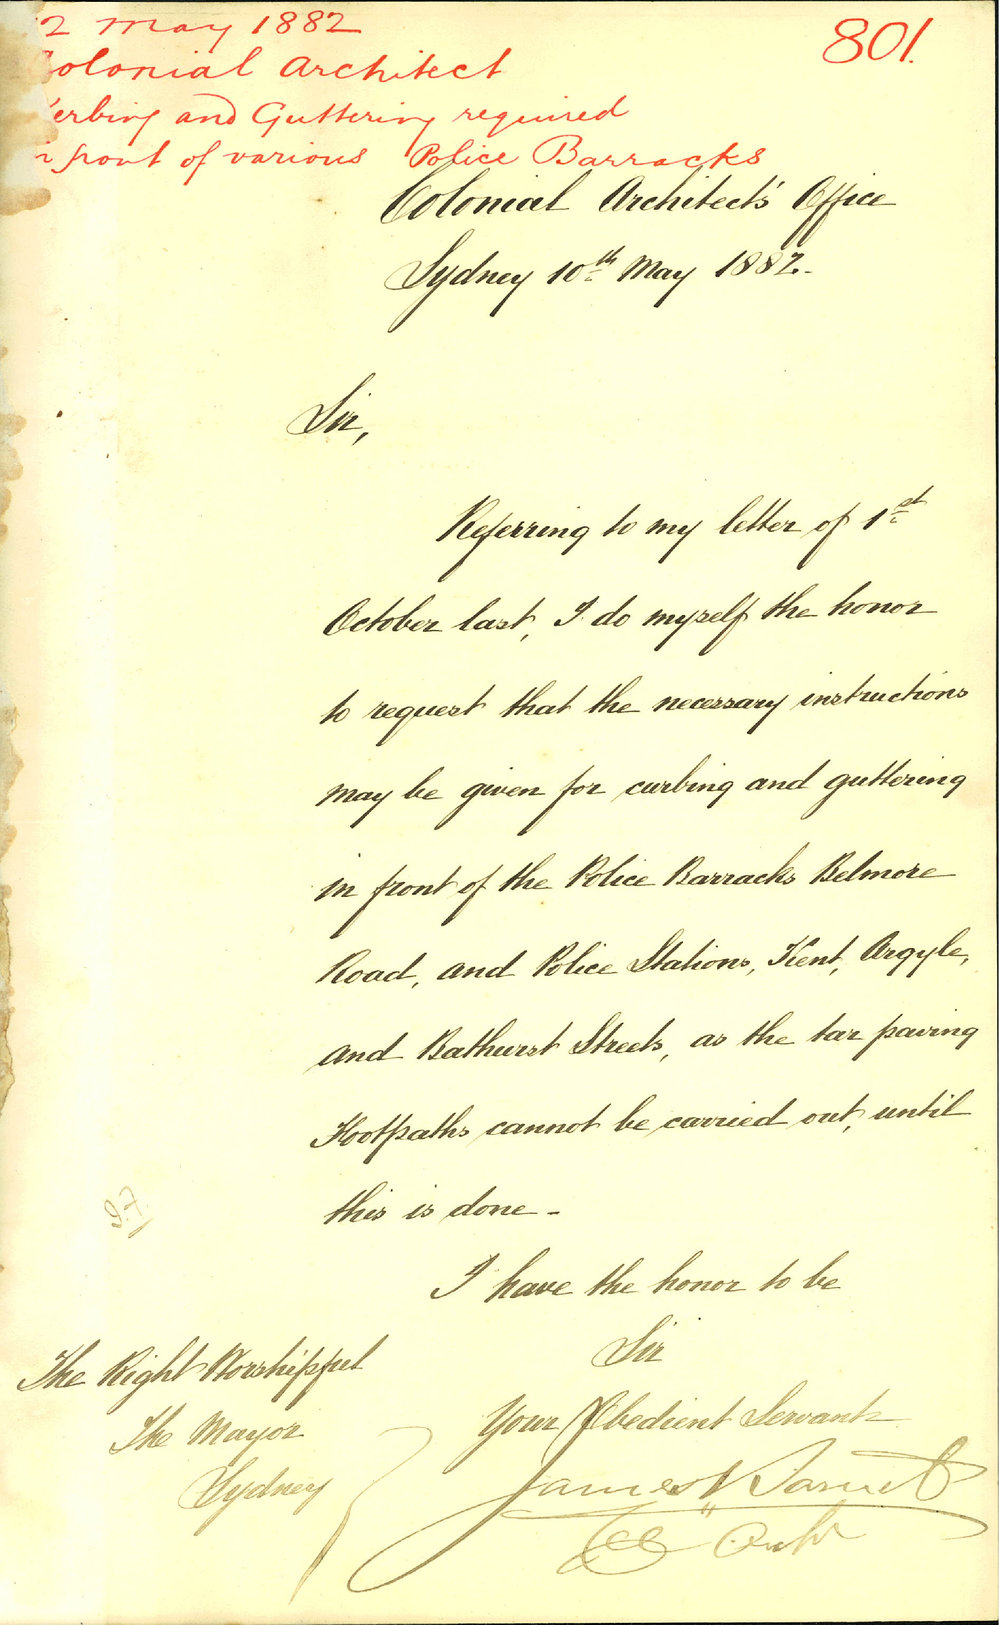 2 May 1882
801.
olonial Architect
erbing and Guttering required
n front of various Police Barracks
Colonial Architect's Office
Sydney 10th May 1882.-
Sir,
Referring to my letter of 1st
October last, I do myself the honor
to request that the necessary instructions
may be given for curbing and guttering
in front of the Police Barracks Belmore
Road, and Police Stations, Kent, Argyle,
and Bathurst Streets, as the tar paving
Footpaths cannot be carried out, until
this is done -
I have the honor to be
Sir
Your Obedient Servant
James Barnet
Col Archt
The Right Worshipful
The Mayor
Sydney